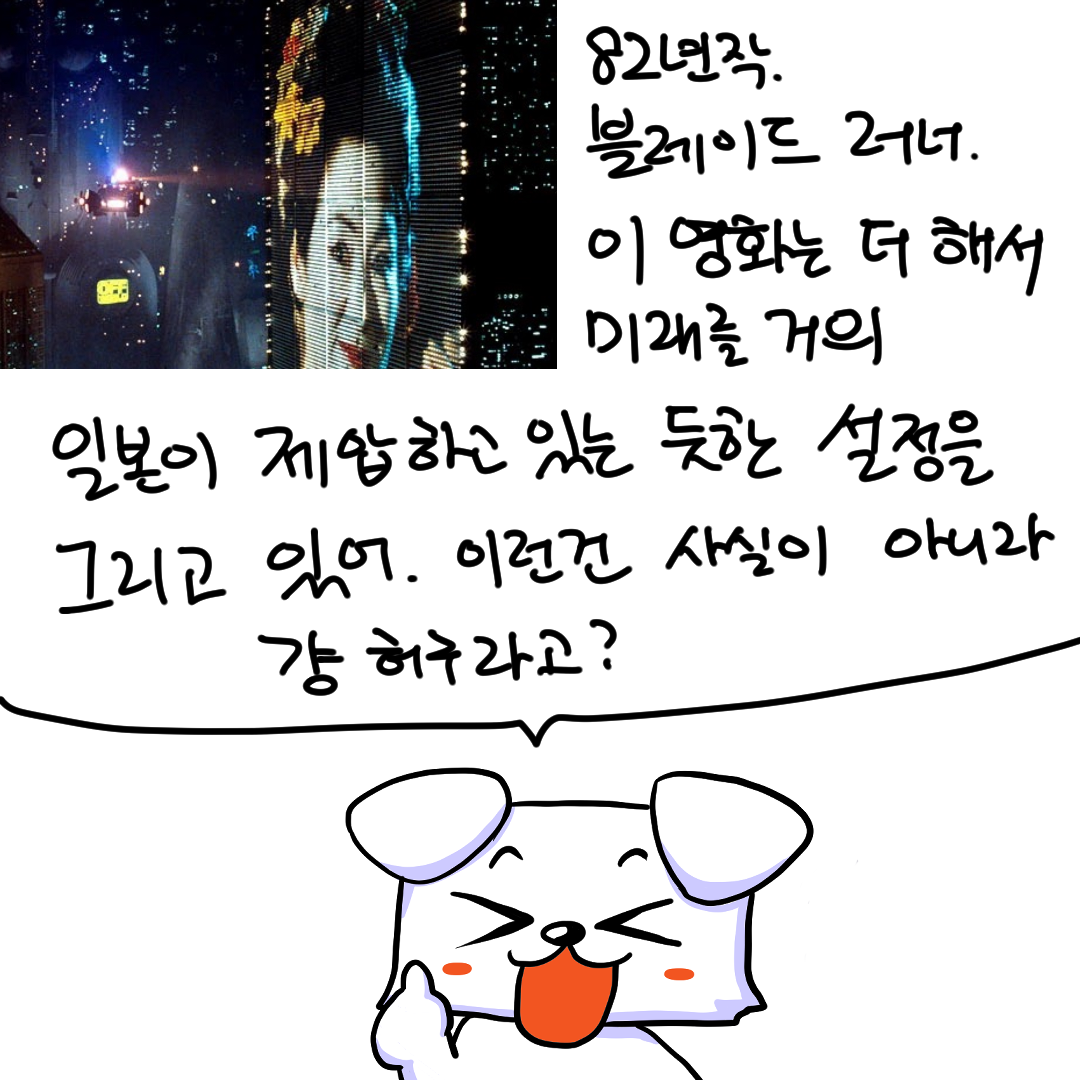 82년작.
블레이드 러너.
이 영화는 더 해서
미래를 거의
일본이 제압하고 있는 듯한 설정을
그리고 있어. 이런건 사실이 아니라
걍 허구라고?
OFF